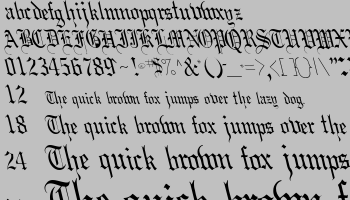 abcdefghijklmnopqrstuvwxyz
ABCDEFGHIJKLMNOPQRSTUVWX
0123456789
12 The quick brown fox jumps over the lazy dog
18 The quick brown fox jumps over the
24 The quick brown fox jumps
The quick brown f